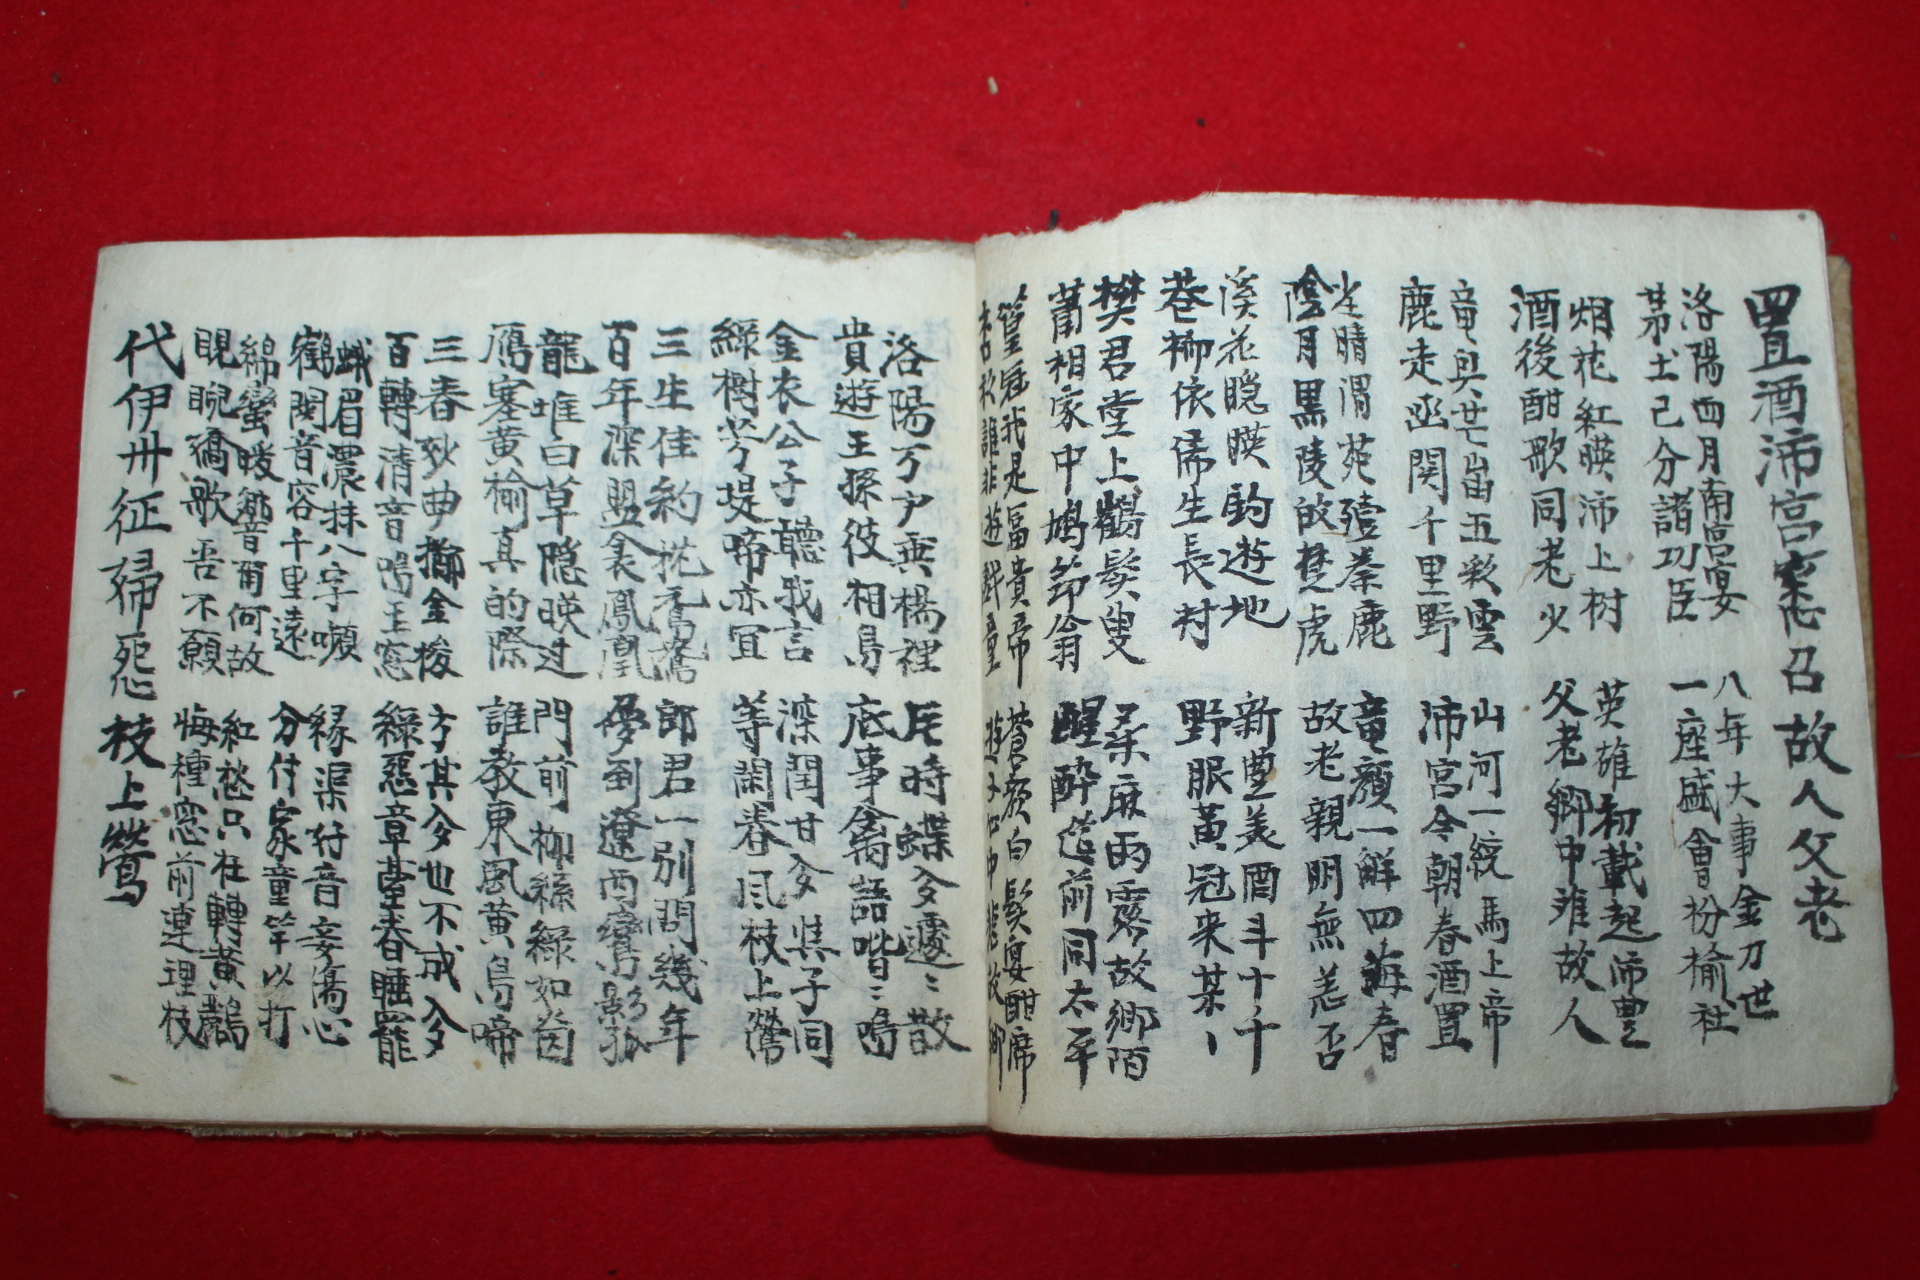 置酒沛宮悉召故人父老
洛陽四月南宮宴 八年大事金刀世
茅土已分諸功臣 一座盛會枌榆社
烟花紅暎沛上树 英雄初載起沛豊
酒後酣歌同老少 父老鄉中誰故人
竜與芒岀五彩雲 山河一統馬上帝
鹿走函関千里野 沛宮今朝春酒置
晴渭苑殪秦鹿 竜顏一觧四海春
陰月黒陵故楚虎 故老親朋無恙否
溪花隐暎釣遊地 新豊美酒斗十千
巷柳依俙生長村 野服黃冠来某丶
樊君堂上鶴髮叟 桑麻雨露故鄉陌
蕭相家中鳩節翁 醒醉筵前同太平
冠我是富貴帝 蒼顏白髮宴酣席
誰非遊戱童 遊 中 故鄉
洛陽万户垂楊裡 時蝶兮蘧〻散
貴遊王孫彼相 底事禽語喈〻鳴
金衣公子聽我言 深閨甘兮 子同
綠樹芳堤啼亦宜 等閑春風枝上鶯
三生佳約 郎君一別問幾年
百年深盟 鳳凰 夢到遼西鸞影孤
龍堆白草隐暎过 門前柳絲綠如茵
鴈塞黄榆真的際 誰教東風黃鳥啼
三春 曲擲金梭 方其兮也不成兮
百轉清音鳴玉窓 綠 章臺春睡罷
蛾眉濃抹八字嚬 緣渠好音妾傷心
鶴関音容千里遠 分付家童竿以打
綿蠻暖響 何故 紅愁只在轉黃鸝
睍睆 歌吾不願 悔種窓前連理枝
代伊州征婦怨枝上鶯